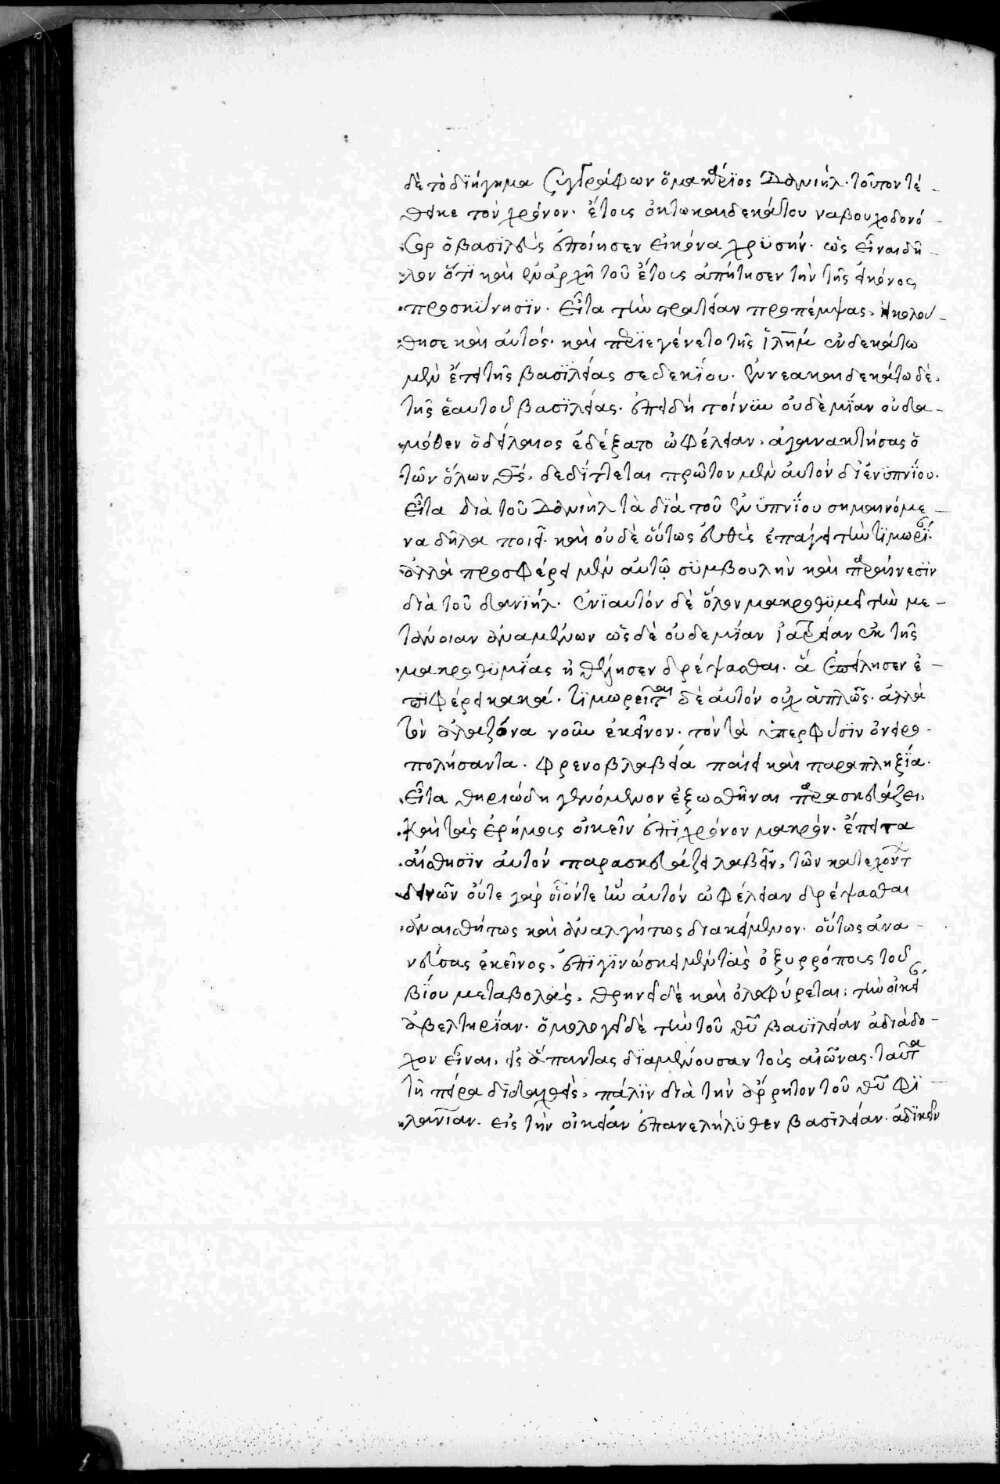 δὲ τὸ διήγημα ξυγγράφων ὁ μακάριος Δανιήλ. τοῦτον τέ
θεικε τὸν χρόνον. ἔτους ὀκτωκαιδεκάτου ναβουχοδονό
σορ ὁ βασιλεὺς ἐποίησεν εἰκόνα χρϋσήν. ὡς εἶναι δῆ
λον ὅτι καὶ ἐν ἀρχῇ τοῦ ἔτους ἀπῄτησεν τὴν τῆς εἰκόνος
προσκϋνησϊν. εἶτα τὴν στρατείαν προπέμψας, ἠκολού
θησε καὶ αὐτός. καὶ περιεγένετο τῆς ἱλημ ἑνδεκάτω
μὲν ἔτει τῆς βασϊλείας σεδεκίου. ἐννεακαιδεκάτω δὲ,
τῆς ἑαυτοῦ βασϊλείας. ἐπειδὴ τοίνυν οὐδὲ μΐαν οὐδα
μόθεν ὁ δείλαιος ἐδέξατο ὠφέλειαν, ἀγανακτήσας ὁ
τῶν ὅλων θς, δεδίττεται πρῶτον μὲν αὐτὸν δι' ἐνϋπνίου.
εἶτα διὰ τοῦ Δανιὴλ τὰ δϊὰ τοῦ ἐνϋπνίου σημαινόμε
να δῆλα ποιεῖ. καὶ οὐδὲ οὕτως εὐθὺς ἐπάγει τὴν τϊμωρίαν.
ἀλλὰ προσφέρει μὲν αὐτῷ σϋμβουλὴν καὶ παραίνεσϊν
διὰ τοῦ δανιήλ. ἐνϊαυτὸν δὲ ὅλον μακροθϋμεῖ τὴν με
τάνοιαν ἀναμένων ὡς δὲ οὐδεμΐαν ἰατρείαν ἐκ τῆς
μακροθϋμΐας ἠθέλησεν δρέψασθαι. ἃ ἠπείλησεν ἐ
πϊφέρει κακά. τϊμωρεῖται δὲ αὐτὸν οὐχ ἁπλῶς. ἀλλὰ
τὸν ἀλαζόνα νοῦν ἐκεῖνον. τὸν τὰ ὑπερφύσϊν ὀνειρο
πολήσαντα. φρενοβλαβείᾳ παίει καὶ παραπληξίᾳ.
εἶτα θηριώδη γενόμενον ἐξωθῆναι παρασκευάζει,
καὶ τὰς ἐρήμους οἰκεῖν ἐπϊ χρόνον μακρόν. ἔπειτα
αἴσθησϊν αὐτὸν παρασκευάζει λαβεῖν, τῶν κατεχόντων
δεινῶν οὔτε γὰρ οἷόντε ἦν αὐτὸν ὠφέλειαν δρέψασθαι
ἀναισθήτως καὶ ἀναλγήτως διακείμενον. οὕτως ἀνα
νεύσας ἐκεῖνος, ἐπϊγϊνώσκει μὲν τὰς ὀξυρρόπους τοῦ
βΐου μεταβολάς, θρηνεῖ δὲ καὶ ὀλοφύρεται, τὴν οἰκείαν
ἀβελτηρΐαν. ὁμολογεῖ δὲ τὴν τοῦ θῦ βασϊλείαν ἀδιάδο
χον εἶναι, εἰς ἅπαντας δϊαμένουσαν τοὺς αἰῶνας. ταῦτα
τῇ πείρα δϊδαχθεὶς, πάλϊν διὰ τὴν ἄρρητον τοῦ θῦ φϊ
λανΐαν. εἰς τὴν οἰκείαν ἐπανελήλϋθεν βασϊλείαν. ἀδϊκεῖν